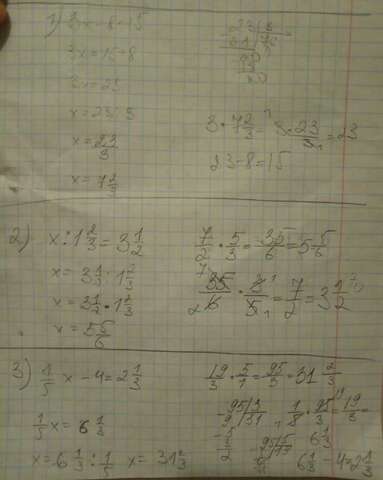 1) 3x-8=15
3x=15+8
3x=23
x=23:3
x=23/3
x=7 2/3
3·7 2/3=3·23/3=23
23-8=15
2) x:1 2/3=3 1/2
x=3 1/2·1 2/3
x=35/6
7/2·5/3=35/6=5 5/6
35/6·3/5=7/2=3 1/2
3) 1/5x-4=2 1/3
1/5x=6 1/3
x=6 1/3:1/5 x=31 2/3
19/3·5/1=95/3=31 2/3
1/5·95/3=19/3=
6 1/3
6 1/3-4=2 1/3